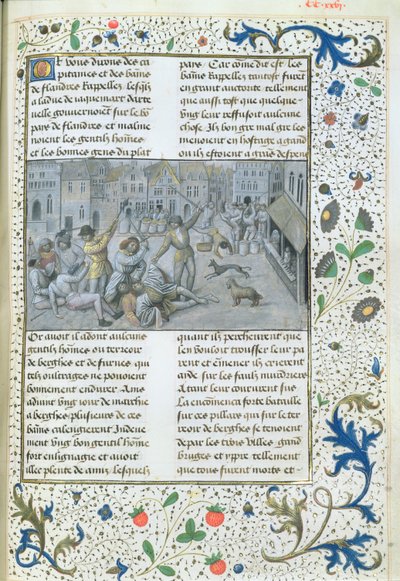 CC xxvi
Or vous dirons des ca
pitaines et des banis
de flandres Rapellez lesqlz
a laduie de iaquemart darte
uelle gouuernoient sur le bo
pays de flandres et malme
noient les gentilz hommes
et les bonnes gens du plat
pays Car come dit est les
banis Rapellez tantost furent
en grant auctorite tellement
que aussi tost que quelque
vng leur reffusoit aulcune
chose Ilz bon gre mal gre les
menoient en hostage a gand
ou ilz estoient a grans despens
Or auoit il adont aulcuns
gentilz homes ou terroir
de berghes et de furnes qui
telz oultrages ne pouoient
bonnement endurer
aduint vng iour de marchie
a berghes plusieurs de ces
banis
ment vng bon gentil home
fort enlignagie et auoit
ville plente de amis lesquelz
quant ilz percheurent que
len vouloit trousser leur pa
rent et emener ilz crierent
aide sur les faulx murdriers
Atant leur coururent sus
La encomenca forte bataille
sur ces pillars qui sur le ter
roir de berghes se tenoient
de par les trois villes gand
bruges et ypre tellement
que tous furent mors et